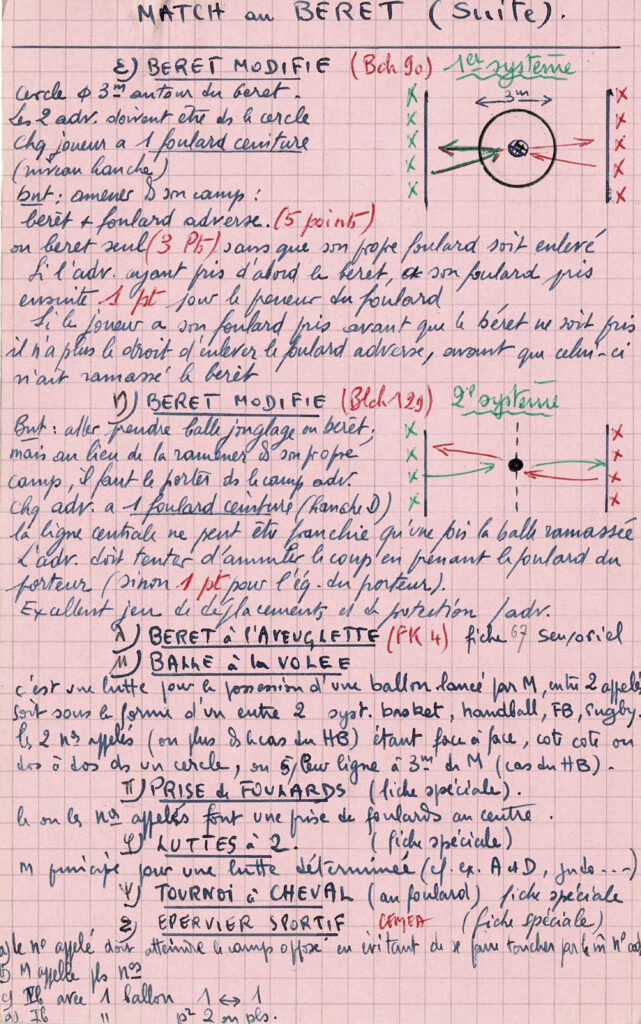 MATCH au BERET (Suite).
ε) BERET MODIFIE (Bch 90) 1er système
cercle φ 3m autour du beret.
Les 2 adv. doivent être ds le cercle
Chq joueur a 1 foulard ceinture
(niveau hanche)
but : amener ds son camp :
beret + foulard adverse. (5 points)
ou beret seul (3 Pts) sans que son propre foulard soit enlevé
Si l'adv. ayant pris d'abord le beret, a son foulard pris
ensuite 1 pt pour le preneur du foulard
Si le joueur a son foulard pris avant que le béret ne soit pris
il n'a plus le droit d'enlever le foulard adverse, avant que celui-ci
n'ait ramassé le berêt
x x
x 3m x
x x
x x
x x
η) BERET MODIFIE (Blch 129) 2e système
But : aller prendre balle jonglage ou berêt,
mais au lieu de la ramener ds son propre
camp, il faut le porter ds le camp adv.
Chq adv. a 1 foulard ceinture (hanche D)
la ligne centrale ne peut être franchie qu'une fois la balle ramassée
L'adv. doit tenter d'annuler le coup en prenant le foulard du
porteur (sinon 1 pt pour l'éq. du porteur).
Excellent jeu de déplacements et de protection / adv.
x x
x x
x x
x x
λ) BERET à l'AVEUGLETTE (FK 4) fiche 67 sensoriel
μ) BALLE à la VOLEE
c'est une lutte pour la possession d'une ballon lancé par M, entre 2 appelés
soit sous la forme d'un entre 2 syst. basket, handball, FB, rugby.
les 2 nos appelés (ou plus ds le cas du HB) étant face à face, cote cote ou
dos à dos ds un cercle, ou s/leur ligne à 3m de M (cas du HB).
π) PRISE de FOULARDS (fiche spéciale).
le ou les nos appelés font une prise de foulards au centre.
φ) LUTTES à 2. (fiche spéciale)
M principe pour une lutte déterminée (cf. ex. A et D, judo ----)
ψ) TOURNOI à CHEVAL (au foulard) fiche spéciale
EPERVIER SPORTIF CEMEA (fiche spéciale)
a) le no appelé doit atteindre le camp opposé en évitant de se faire toucher par le m no adv
b) M appelle pls nos
c) Ib avec 1 ballon 1 ↔ 1
d) Ib " pr 2 ou pls.